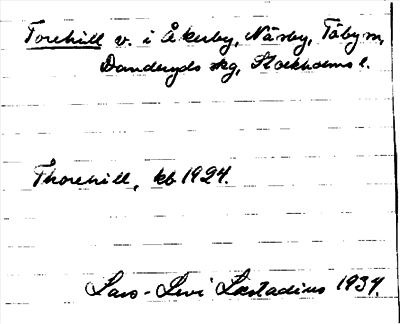 Torehill v. i Åkerby, Näsby, Täby sn,
Danderyds skg, Stockholms l.
Thorehill, kb 1924.
Lars-Levi Læstadius 1937.